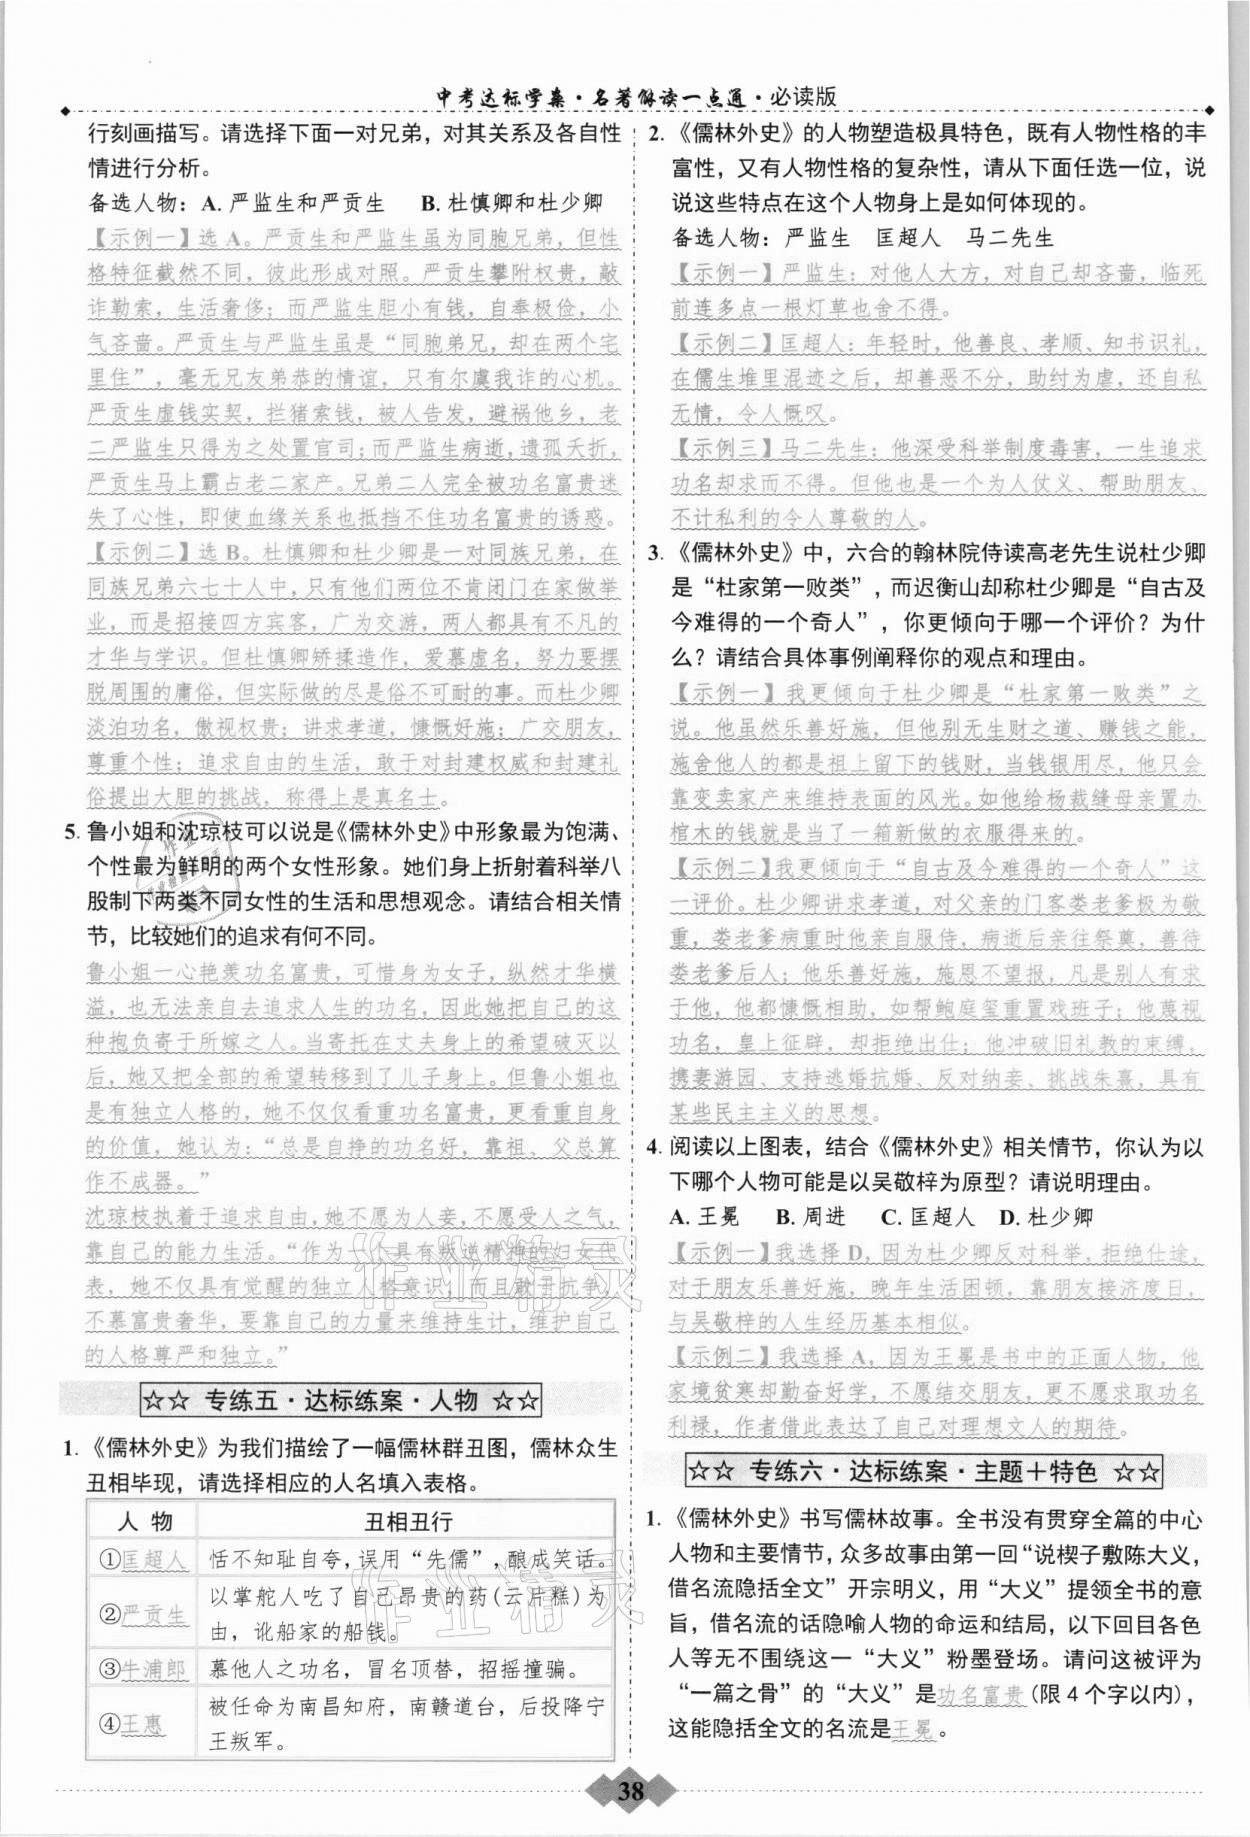 中考达标学案·名著解读一点通·必读版
行刻画描写。请选择下面一对兄弟，对其关系及各自性
情进行分析。
备选人物：A. 严监生和严贡生　B. 杜慎卿和杜少卿
【示例一】选 A。严贡生和严监生虽为同胞兄弟，但性
格特征截然不同，彼此形成对照。严贡生攀附权贵，敲
诈勒索，生活奢侈；而严监生胆小有钱，自奉极俭，小
气吝啬。严贡生与严监生虽是“同胞弟兄，却在两个宅
里住”，毫无兄友弟恭的情谊，只有尔虞我诈的心机。
严贡生虚钱实契，拦猪索钱，被人告发，避祸他乡，老
二严监生只得为之处置官司；而严监生病逝，遗孤夭折，
严贡生马上霸占老二家产。兄弟二人完全被功名富贵迷
失了心性，即使血缘关系也抵挡不住功名富贵的诱惑。
【示例二】选 B。杜慎卿和杜少卿是一对同族兄弟，在
同族兄弟六七十人中，只有他们两位不肯闭门在家做举
业，而是招接四方宾客，广为交游，两人都具有不凡的
才华与学识。但杜慎卿矫揉造作，爱慕虚名，努力要摆
脱周围的庸俗，但实际做的尽是俗不可耐的事。而杜少卿
淡泊功名，傲视权贵；讲求孝道，慷慨好施；广交朋友，
尊重个性；追求自由的生活，敢于对封建权威和封建礼
俗提出大胆的挑战，称得上是真名士。
5. 鲁小姐和沈琼枝可以说是《儒林外史》中形象最为饱满、
个性最为鲜明的两个女性形象。她们身上折射着科举八
股制下两类不同女性的生活和思想观念。请结合相关情
节，比较她们的追求有何不同。
鲁小姐一心艳羡功名富贵，可惜身为女子，纵然才华横
溢，也无法亲自去追求人生的功名，因此她把自己的这
种抱负寄于所嫁之人。当寄托在丈夫身上的希望破灭以
后，她又把全部的希望转移到了儿子身上。但鲁小姐也
是有独立人格的，她不仅仅看重功名富贵，更看重自身
的价值，她认为：“总是自挣的功名好，靠祖、父总算
作不成器。”
沈琼枝执着于追求自由，她不愿为人妾，不愿受人之气，
靠自己的能力生活。“作为一个具有叛逆精神的妇女代
表，她不仅具有觉醒的独立人格意识，而且敢于抗争，
不慕富贵奢华，要靠自己的力量来维持生计，维护自己
的人格尊严和独立。”
☆☆ 专练五·达标练案·人物 ☆☆
1. 《儒林外史》为我们描绘了一幅儒林群丑图，儒林众生
丑相毕现，请选择相应的人名填入表格。
人 物　丑相丑行
①匡超人　恬不知耻自夸，误用“先儒”，酿成笑话。
②严贡生　以掌舵人吃了自己昂贵的药(云片糕)为
由，讹船家的船钱。
③牛浦郎　慕他人之功名，冒名顶替，招摇撞骗。
④王惠　被任命为南昌知府，南赣道台，后投降宁
王叛军。
2. 《儒林外史》的人物塑造极具特色，既有人物性格的丰
富性，又有人物性格的复杂性，请从下面任选一位，说
说这些特点在这个人物身上是如何体现的。
备选人物：严监生　匡超人　马二先生
【示例一】严监生：对他人大方，对自己却吝啬，临死
前连多点一根灯草也舍不得。
【示例二】匡超人：年轻时，他善良、孝顺、知书识礼，
在儒生堆里混迹之后，却善恶不分，助纣为虐，还自私
无情，令人慨叹。
【示例三】马二先生：他深受科举制度毒害，一生追求
功名却求而不得。但他也是一个为人仗义、帮助朋友、
不计私利的令人尊敬的人。
3. 《儒林外史》中，六合的翰林院侍读高老先生说杜少卿
是“杜家第一败类”，而迟衡山却称杜少卿是“自古及
今难得的一个奇人”，你更倾向于哪一个评价？为什
么？请结合具体事例阐释你的观点和理由。
【示例一】我更倾向于杜少卿是“杜家第一败类”之
说。他虽然乐善好施，但他别无生财之道、赚钱之能，
施舍他人的都是祖上留下的钱财，当钱银用尽，他只会
靠变卖家产来维持表面的风光。如他给杨裁缝母亲置办
棺木的钱就是当了一箱新做的衣服得来的。
【示例二】我更倾向于“自古及今难得的一个奇人”这
一评价。杜少卿讲求孝道，对父亲的门客娄老爹极为敬
重，娄老爹病重时他亲自服侍，病逝后亲往祭奠，善待
娄老爹后人；他乐善好施，施恩不望报，凡是别人有求
于他，他都慷慨相助，如帮鲍庭玺重置戏班子；他蔑视
功名，皇上征辟，却拒绝出仕；他冲破旧礼教的束缚，
携妻游园、支持逃婚抗婚、反对纳妾、挑战朱熹，具有
某些民主主义的思想。
4. 阅读以上图表，结合《儒林外史》相关情节，你认为以
下哪个人物可能是以吴敬梓为原型？请说明理由。
A. 王冕　B. 周进　C. 匡超人　D. 杜少卿
【示例一】我选择 D，因为杜少卿反对科举，拒绝仕途，
对于朋友乐善好施，晚年生活困顿，靠朋友接济度日，
与吴敬梓的人生经历基本相似。
【示例二】我选择 A，因为王冕是书中的正面人物，他
家境贫寒却勤奋好学，不愿结交朋友，更不愿求取功名
利禄，作者借此表达了自己对理想文人的期待。
☆☆ 专练六·达标练案·主题＋特色 ☆☆
1. 《儒林外史》书写儒林故事。全书没有贯穿全篇的中心
人物和主要情节，众多故事由第一回“说楔子敷陈大义，
借名流隐括全文”开宗明义，用“大义”提领全书的意
旨，借名流的话隐喻人物的命运和结局，以下回目各色
人等无不围绕这一“大义”粉墨登场。请问这被评为
“一篇之骨”的“大义”是功名富贵(限 4 个字以内)，
这能隐括全文的名流是王冕。
38
作业精灵
作业精灵